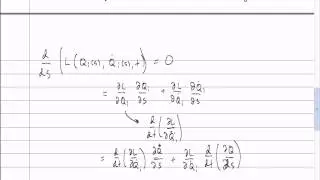 d/ds ( L ( Q_i(s), Q̇_i(s), t ) = 0
= ∂L/∂Q_i ∂Q_i/∂s + ∂L/∂Q̇_i ∂Q̇_i/∂s
d/dt ( ∂L/∂Q̇_i )
= d/dt ( ∂L/∂Q̇_i ) ∂Q_i/∂s + ∂L/∂Q̇_i d/dt ( ∂Q_i/∂s )